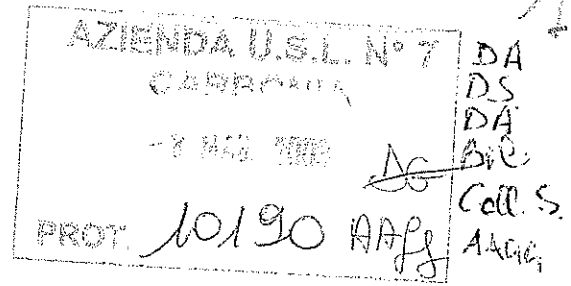 AZIENDA U.S.L. N° 7
CARBONIA
PROT. 10190 AAGG
DA
DS
DA
Coll. S.
AAGG